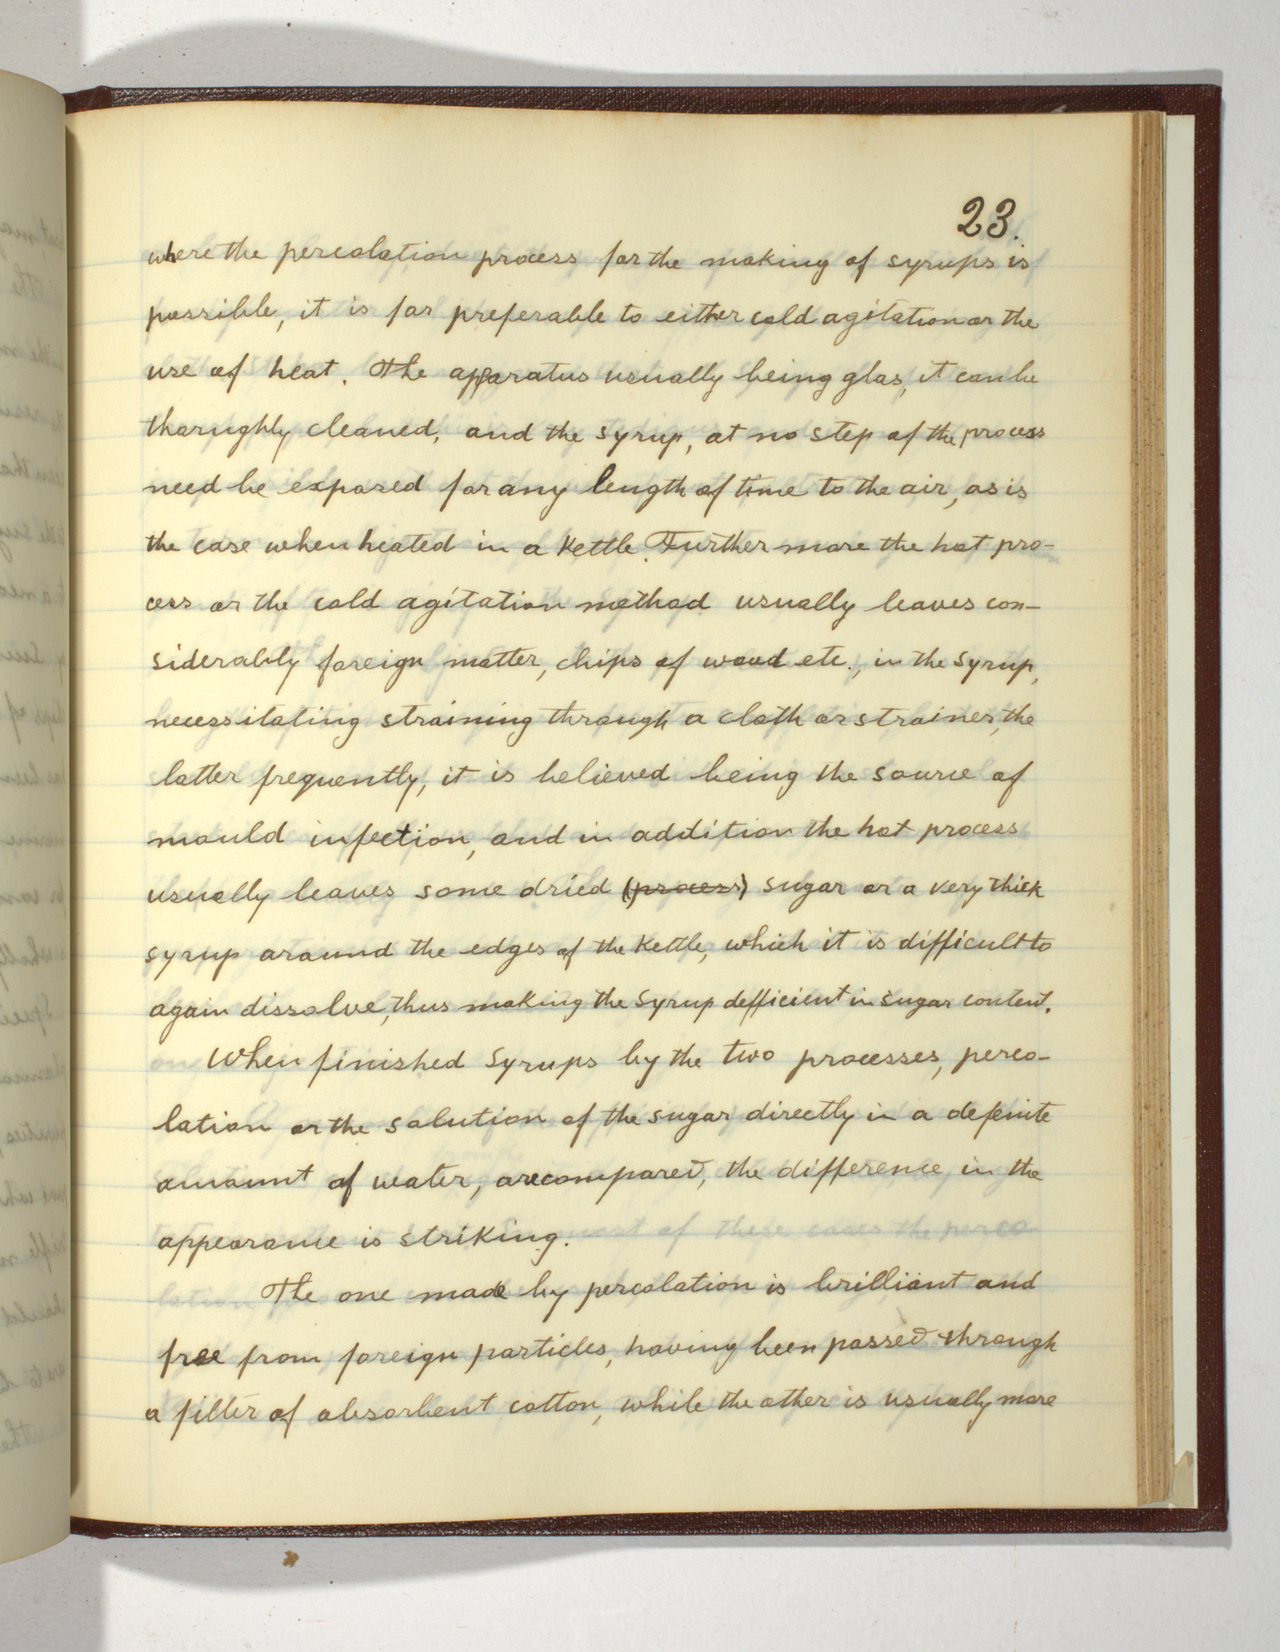 23.
where the percolation process for the making of syrups is
possible, it is far preferable to either cold agitation or the
use of heat. The apparatus usually being glas, it can be
thorughly cleaned, and the syrup, at no step of the process
need be exposed for any length of time to the air, as is
the case when heated in a Kettle. Further more the hot pro-
cess or the cold agitation method usually leaves con-
siderably foreign matter, chips of wood etc., in the syrup,
necessitating straining through a cloth or strainer, the
latter frequently, it is believed being the source of
mould infection, and in addition the hot process
usually leaves some dried (process) sugar or a very thick
syrup around the edges of the Kettle, which it is difficult to
again dissolve, thus making the syrup defficient in sugar content.
When finished syrups by the two processes, perco-
lation or the solution of the sugar directly in a definite
amount of water, are compared, the difference in the
appearance is striking.
The one made by percolation is brilliant and
free from foreign particles, having been passed through
a filter of absorbent cotton, while the other is usually more